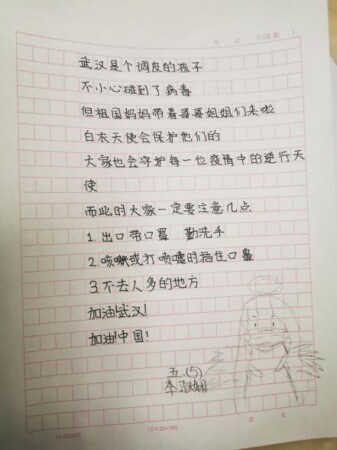 武汉是个调皮的孩子
不小心碰到了病毒
但祖国妈妈带着哥哥姐姐们来啦
白衣天使会保护他们的
大家也会守护每一位疫情中的逆行天
使
而此时大家一定要注意几点
1.出口带口罩 勤洗手
2.咳嗽或打喷嚏时挡住口鼻
3.不去人多的地方
加油!武汉!
加油!中国!
五.(5)
李
15×20=300